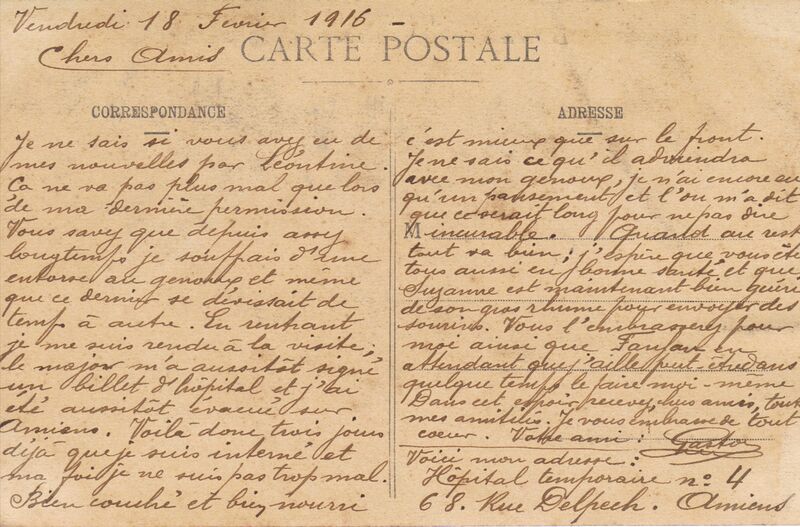 Vendredi 18 Fevrier 1916 -
Chers Amis
CARTE POSTALE
CORRESPONDANCE
Je ne sais si vous avez eu de
mes nouvelles par Léontine.
Ca ne va pas plus mal que lors
de ma dernière permission.
Vous savez que depuis assez
longtemps je souffrais d'une
entorse au genoux et même
que ce dernier se dévissait de
temps à autre. En rentrant
je me suis rendu à la visite;
le major m'a aussitôt signé
un billet d'hôpital et j'ai
été aussitôt évacué sur
Amiens. Voilà donc trois jours
déjà que je suis interné et
ma foi je ne suis pas trop mal.
Bien couché et bien nourri
ADRESSE
c'est mieux que sur le front.
Je ne sais ce qu'il adviendra
avec mon genoux, je n'ai encore eu
qu'un pansement et l'on m'a dit
que ce serait long pour ne pas dire
M incurable. Quand au rest
tout va bien; j'espère que vous ête
tous aussi en bonne santé et que
Suzanne est maintenant bien guérie
de son gros rhume pour envoyer des
sourires. Vous l'embrasserez pour
moi ainsi que Fanfan en
attendant que j'aille peut-être dans
quelque temps le faire moi-même
Dans cet espoir recevez, chers amis, tout
mes amitiés. Je vous embrasse de tout
coeur. Votre ami: Gaston
Voici mon adresse:
Hôpital temporaire n° 4
68. Rue Delpech. Amiens